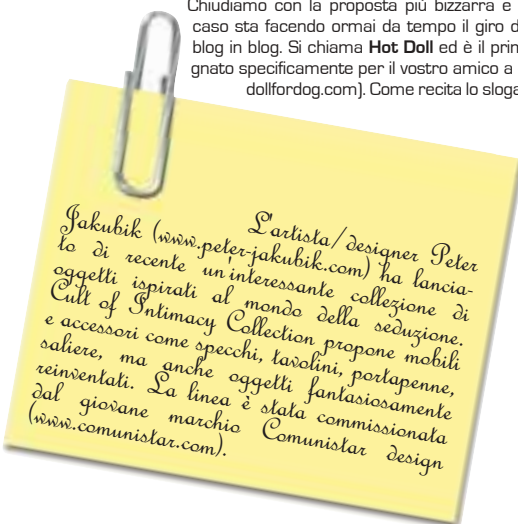 Chiudiamo con la proposta più bizzarra e
caso sta facendo ormai da tempo il giro d
blog in blog. Si chiama Hot Doll ed è il prin
gnato specificamente per il vostro amico a
dollfordog.com). Come recita lo sloga
L'artista/designer Peter
Jakubik (www.peter-jakubik.com) ha lancia-
to di recente un'interessante collezione di
oggetti ispirati al mondo della seduzione.
Cult of Intimacy Collection propone mobili
e accessori come specchi, tavolini, portapenne,
saliere, ma anche oggetti fantasiosamente
reinventati. La linea è stata commissionata
dal giovane marchio Comunistar design
(www.comunistar.com).